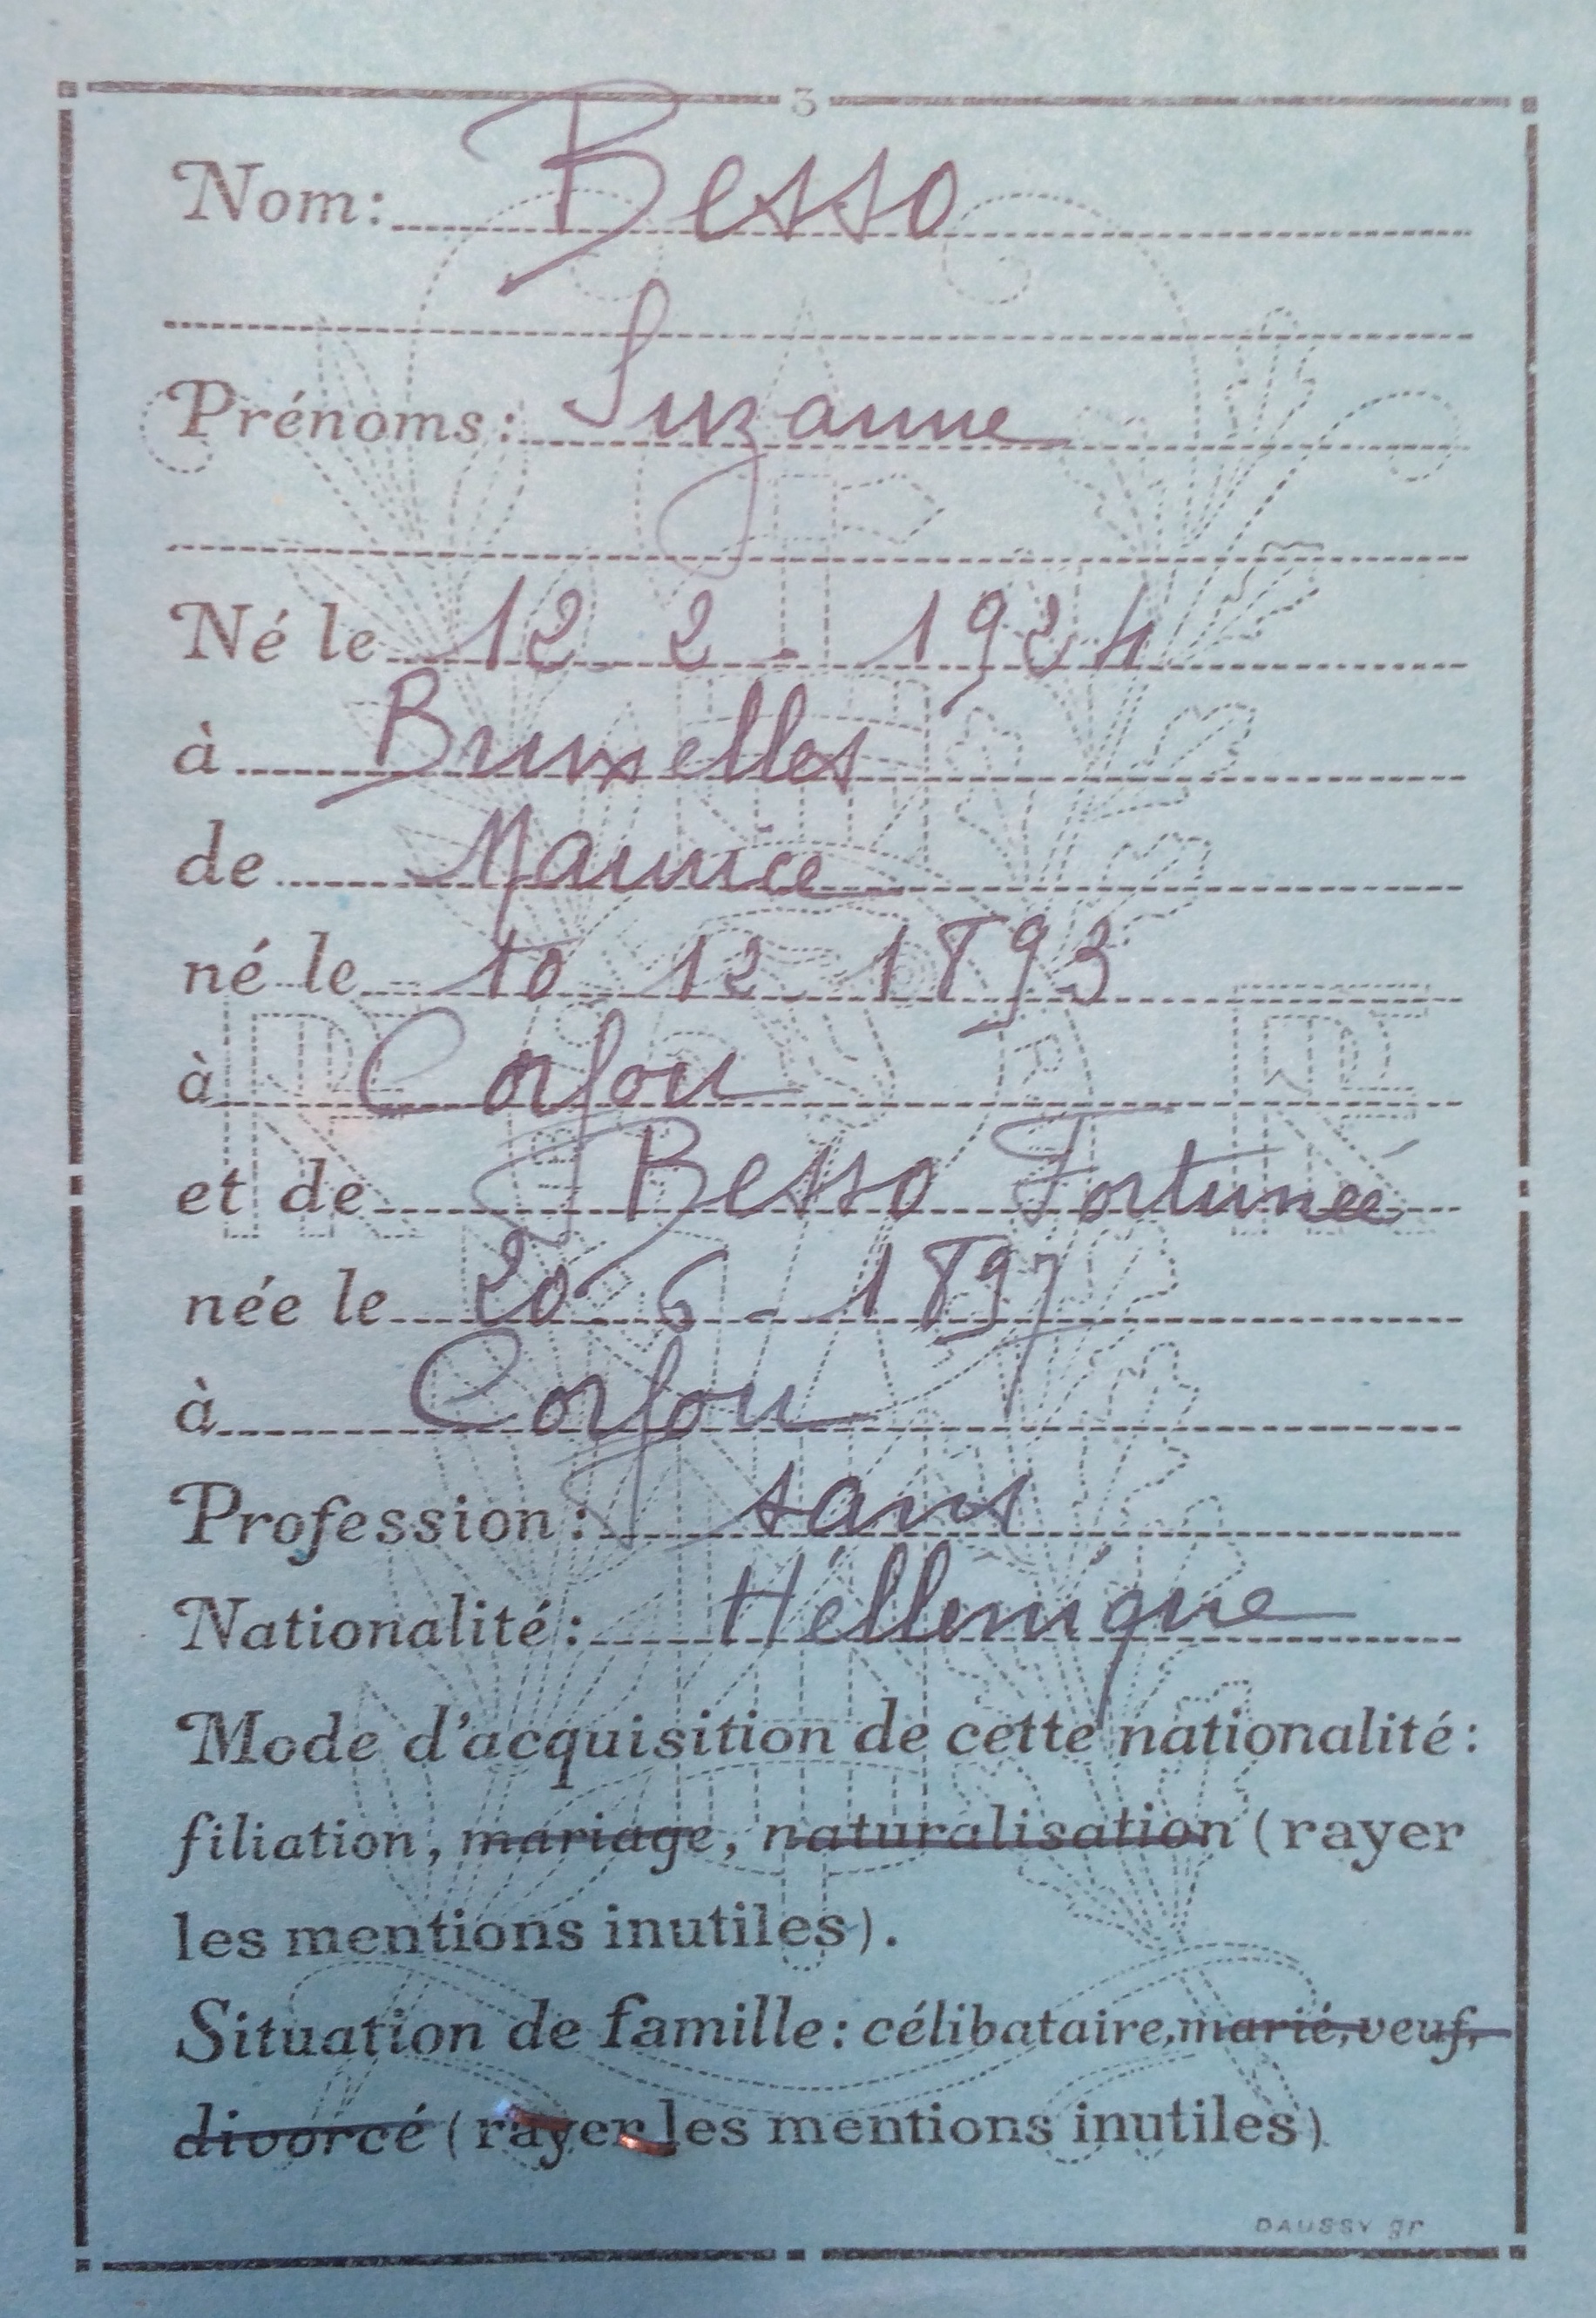 3
Nom: Besso
Prénoms: Suzanne
Né le 12 2 - 1924
à Bruxelles
de Maurice
né le 10 12 1893
à Corfou
et de Besso Fortunée
née le 20 6 - 1897
à Corfou
Profession: sans
Nationalité: Héllenique
Mode d'acquisition de cette nationalité:
filiation, mariage, naturalisation (rayer
les mentions inutiles).
Situation de famille: célibataire, marié, veuf,
divorcé (rayer les mentions inutiles)
DAUSSY gr